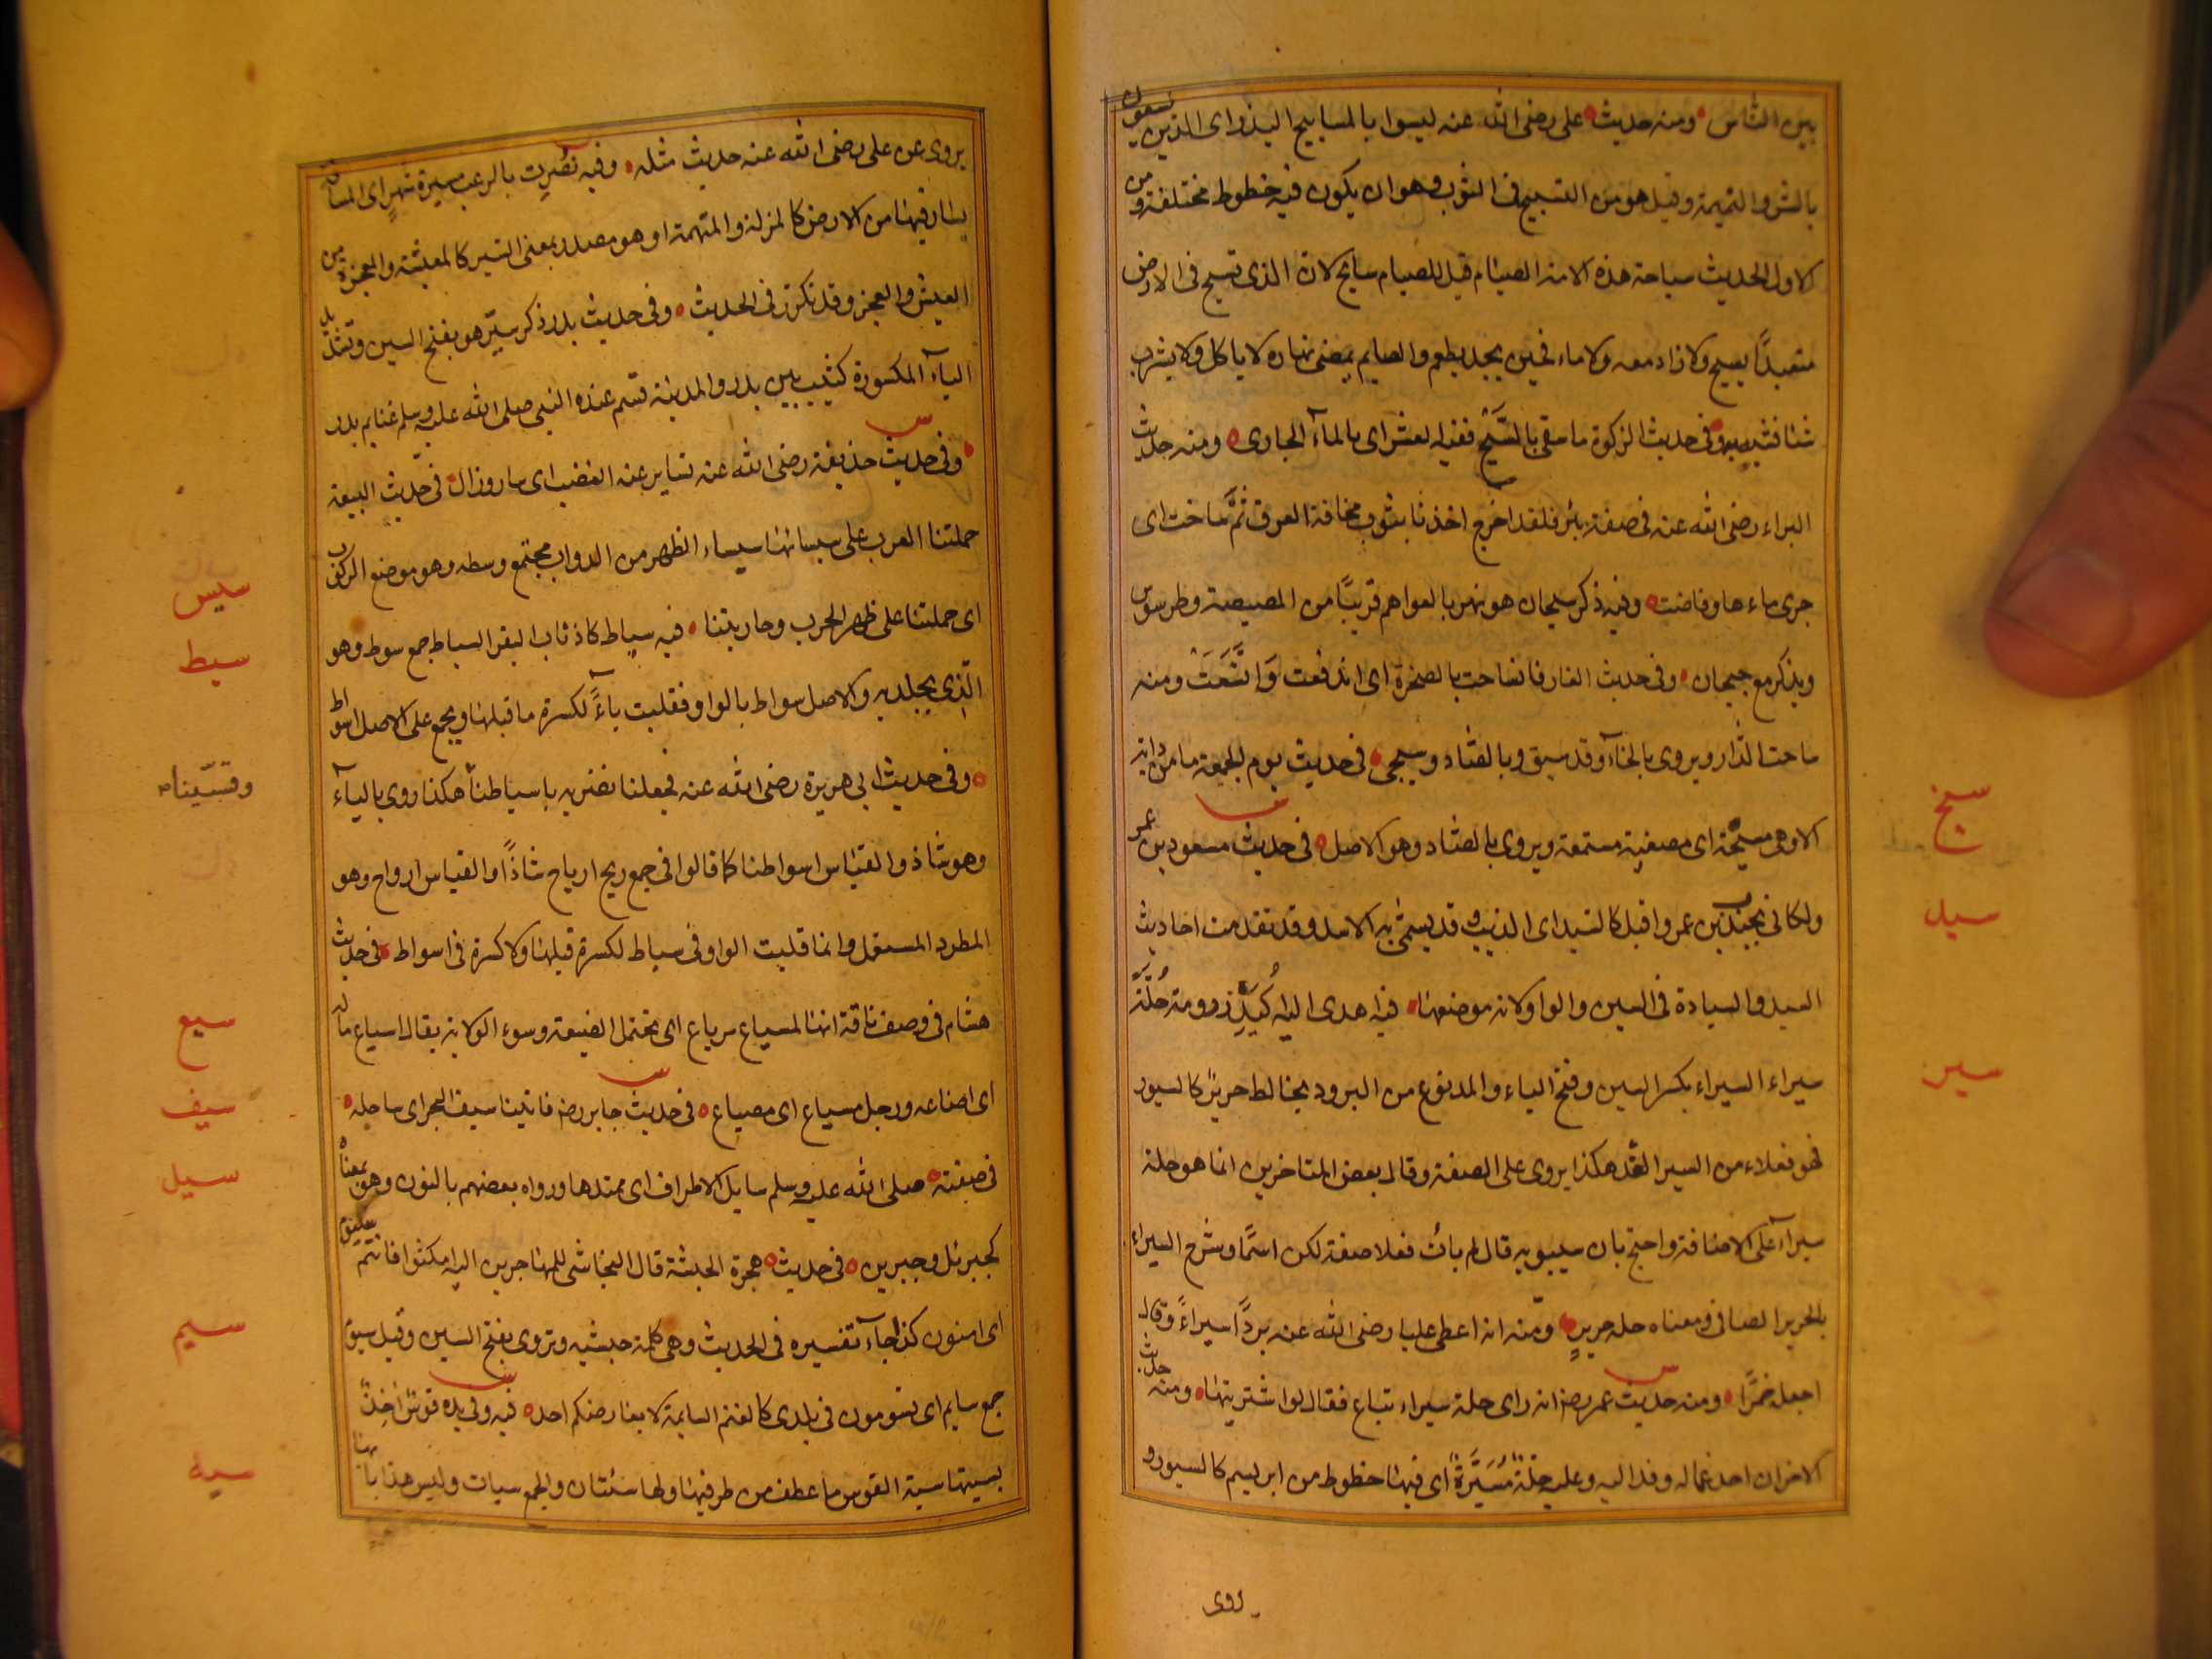 بين الناس ومنه حديث على رضى الله عنه ليسوا بالمسابيح البذر اى الذين يسعون
بالشر والنميمة وقيل هو من التسييح فى الثوب وهو ان يكون فيه خطوط مختلفة ومن
الاول الحديث سياحة هذه الامة الصيام قيل للصيام سايح لان الذى تسيح فى الارض
متعبدا يسيح ولا زاد معه ولا ماء فحين يجد يطعم والصايم يمضى نهاره لا ياكل ولا يشرب
شئا فشبه به وفى حديث الزكوة ما سقى بالسَّيْح ففيه العشر اى بالماء الجارى ومنه حديث
البراء رضى الله عنه فى صفة بئر فلقد اخرج احدنا بثوب مخافة الغرق ثمّ ساحت اى
جرى ماءها وفاضت وفيه ذكر سيحان هو نهر بالعواصم قريبًا من المصيصة وطرسوس
ويذكر مع جيحان وفى حديث الغار فانساحت بالصخرة اى اندفعت وَاتَّسَعَتْ ومنه
ساحت الدّار ويروى بالخاء وقد سبق وبالصاد وسيجى فى حديث يوم الجمعة ما من دابة
سيخ
الا وهى مسيخة اى مصغية مستمعة ويروى بالصاد وهو الاصل فى حديث مسعود بن عمر
سيد
ولكانى بجندب بن عمرو اقبل كالسيد اى الذيب وقد يسمى به الاسد وقد تقدمت احاديث
السيد والسيادة فى السين والواو لانه موضعها فيه اهدى اليه اُكَيْدِر دومة حُلَّةً
سير
سيراء السيراء بكسر السين وفتح الياء والمد نوع من البرود يخالط حرير كالسيور
فهو فعلاء من السير القد هكذا يروى على الصفة وقال بعض المتاخرين انما هو حلة
سيراء على الاضافة واحتج بان سيبويه قال لم يات فعلا صفة لكن اسمًا وشرح السيراء
بالحرير الصافى ومعناه حلة حريرٍ ومنه انه اعطى عليا رضى الله عنه بردًا سيراءً وقال
اجعله خمرًا ومنه حديث عمر رضه انه راى حلة سيراء تباع فقال لو اشتريتها ومنه حديث
الاخر ان احد عماله وفد اليه وعليه حلّةٌ مُسَيَّرةٌ اى فيها خطوط من ابريسم كالسيور و
روى
يروى عن على رضى الله عنه حديث مثله وفيه نُصرت بالرعب مسيرة شهر اى المسافة
يسار فيها من الارض كالمنزلة والمتهمة او هو مصدر بمعنى السير كالمعيشة والمعجزة من
العيش والعجز وقد تكرر فى الحديث وفى حديث بدر ذكر سيّر هو بفتح السين وتشديد
الياء المكسورة كثيب بين بدر والمدينة قسم عنده النبى صلى الله عليه وسلم غنايم بدر
وفى حديث حذيفة رضى الله عنه تساير عنه الغضب اى سار وزال فى حديث البيعة
سيس
حملتنا العرب على سيسائها سيساء الظهر من الدواب مجتمع وسطه وهو موضع الركوب
اى حملتنا على ظهر الحرب وحاربتنا فيه سياط كاذناب البقر السياط جمع سوط وهو
سيط
الّذى يجلد به والاصل سواط بالواو فقلبت ياءً لكسرة ما قبلها ويجمع على الاصل اسواط
وفى حديث ابى هريرة رضى الله عنه فجعلنا نضربه باسياطنا هكذا روى بالياء
وقسيّنا
وهو شاذ والقياس اسواطنا كما قالوا فى جمع ريح ارياح شاذًا والقياس ارواح وهو
المطرد المستعمل وانما قلبت الواو فى سياط لكسرة قبلها ولا كسرة فى اسواط فى حديث
سيع
هشام فى وصف ناقة انها لمسياع مرياع اى تحتمل الضيعة وسوء الولاية يقال اسياع ماله
سيف
اى اضاعه ورجل مسياع اى مضياع فى حديث جابر رضه فاتينا سيف البحر اى ساحله
سيل
فى صفته صلى الله عليه وسلم سايل الاطراف اى ممتدها ورواه بعضهم بالنون وهو بمعناه
كجبرئل وجبرين فى حديث هجرة الحبشة قال النجاشى للمهاجرين اليه امكثوا فانتم سيوم
سيم
اى امنون كذا جاء تفسيره فى الحديث وهى كلمة حبشيه وتروى بفتح السين وقيل سيوم
جمع سايم اى تسومون فى بلدى كالغنم السايمة لا يعارضكم احد فيه وفى يده قوسٌ اخذ
سيه
بسيتها سية القوس ما عطف من طرفيها ولها سئتان والجمع سيات وليس هذا بابها